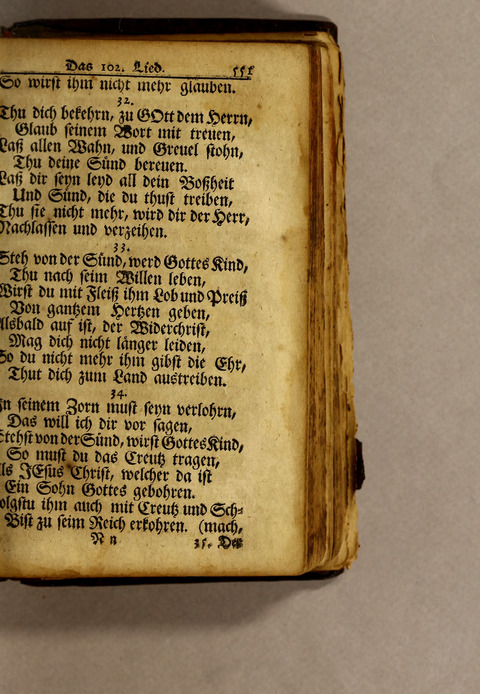 Das 102. Lied. 551
So wirst ihm nicht mehr glauben.
32.
Thu dich bekehrn, zu GOtt dem Herrn,
Glaub seinem Wort mit treuen,
Laß allen Wahn, und Greuel flohn,
Thu deine Sünd bereuen.
Laß dir seyn leyd all dein Boßheit
Und Sünd, die du thust treiben,
Thu sie nicht mehr, wird dir der Herr,
Nachlassen und verzeihen.
33.
Steh von der Sünd, werd Gottes Kind,
Thu nach seim Willen leben,
Wirst du mit Fleiß ihm Lob und Preiß
Von gantzem Hertzen geben,
Alsbald auf ist, der Widerchrist,
Mag dich nicht länger leiden,
So du nicht mehr ihm gibst die Ehr,
Thut dich zum Land austreiben.
34.
In seinem Zorn must seyn verlohrn,
Das will ich dir vor sagen,
Stehst von der Sünd, wirst Gottes Kind,
So must du das Creutz tragen,
Als JEsus Christ, welcher da ist
Ein Sohn Gottes gebohren.
Folgstu ihm auch mit Creutz und Sch-
Bist zu seim Reich erkohren. (mach,
N n 35. Der